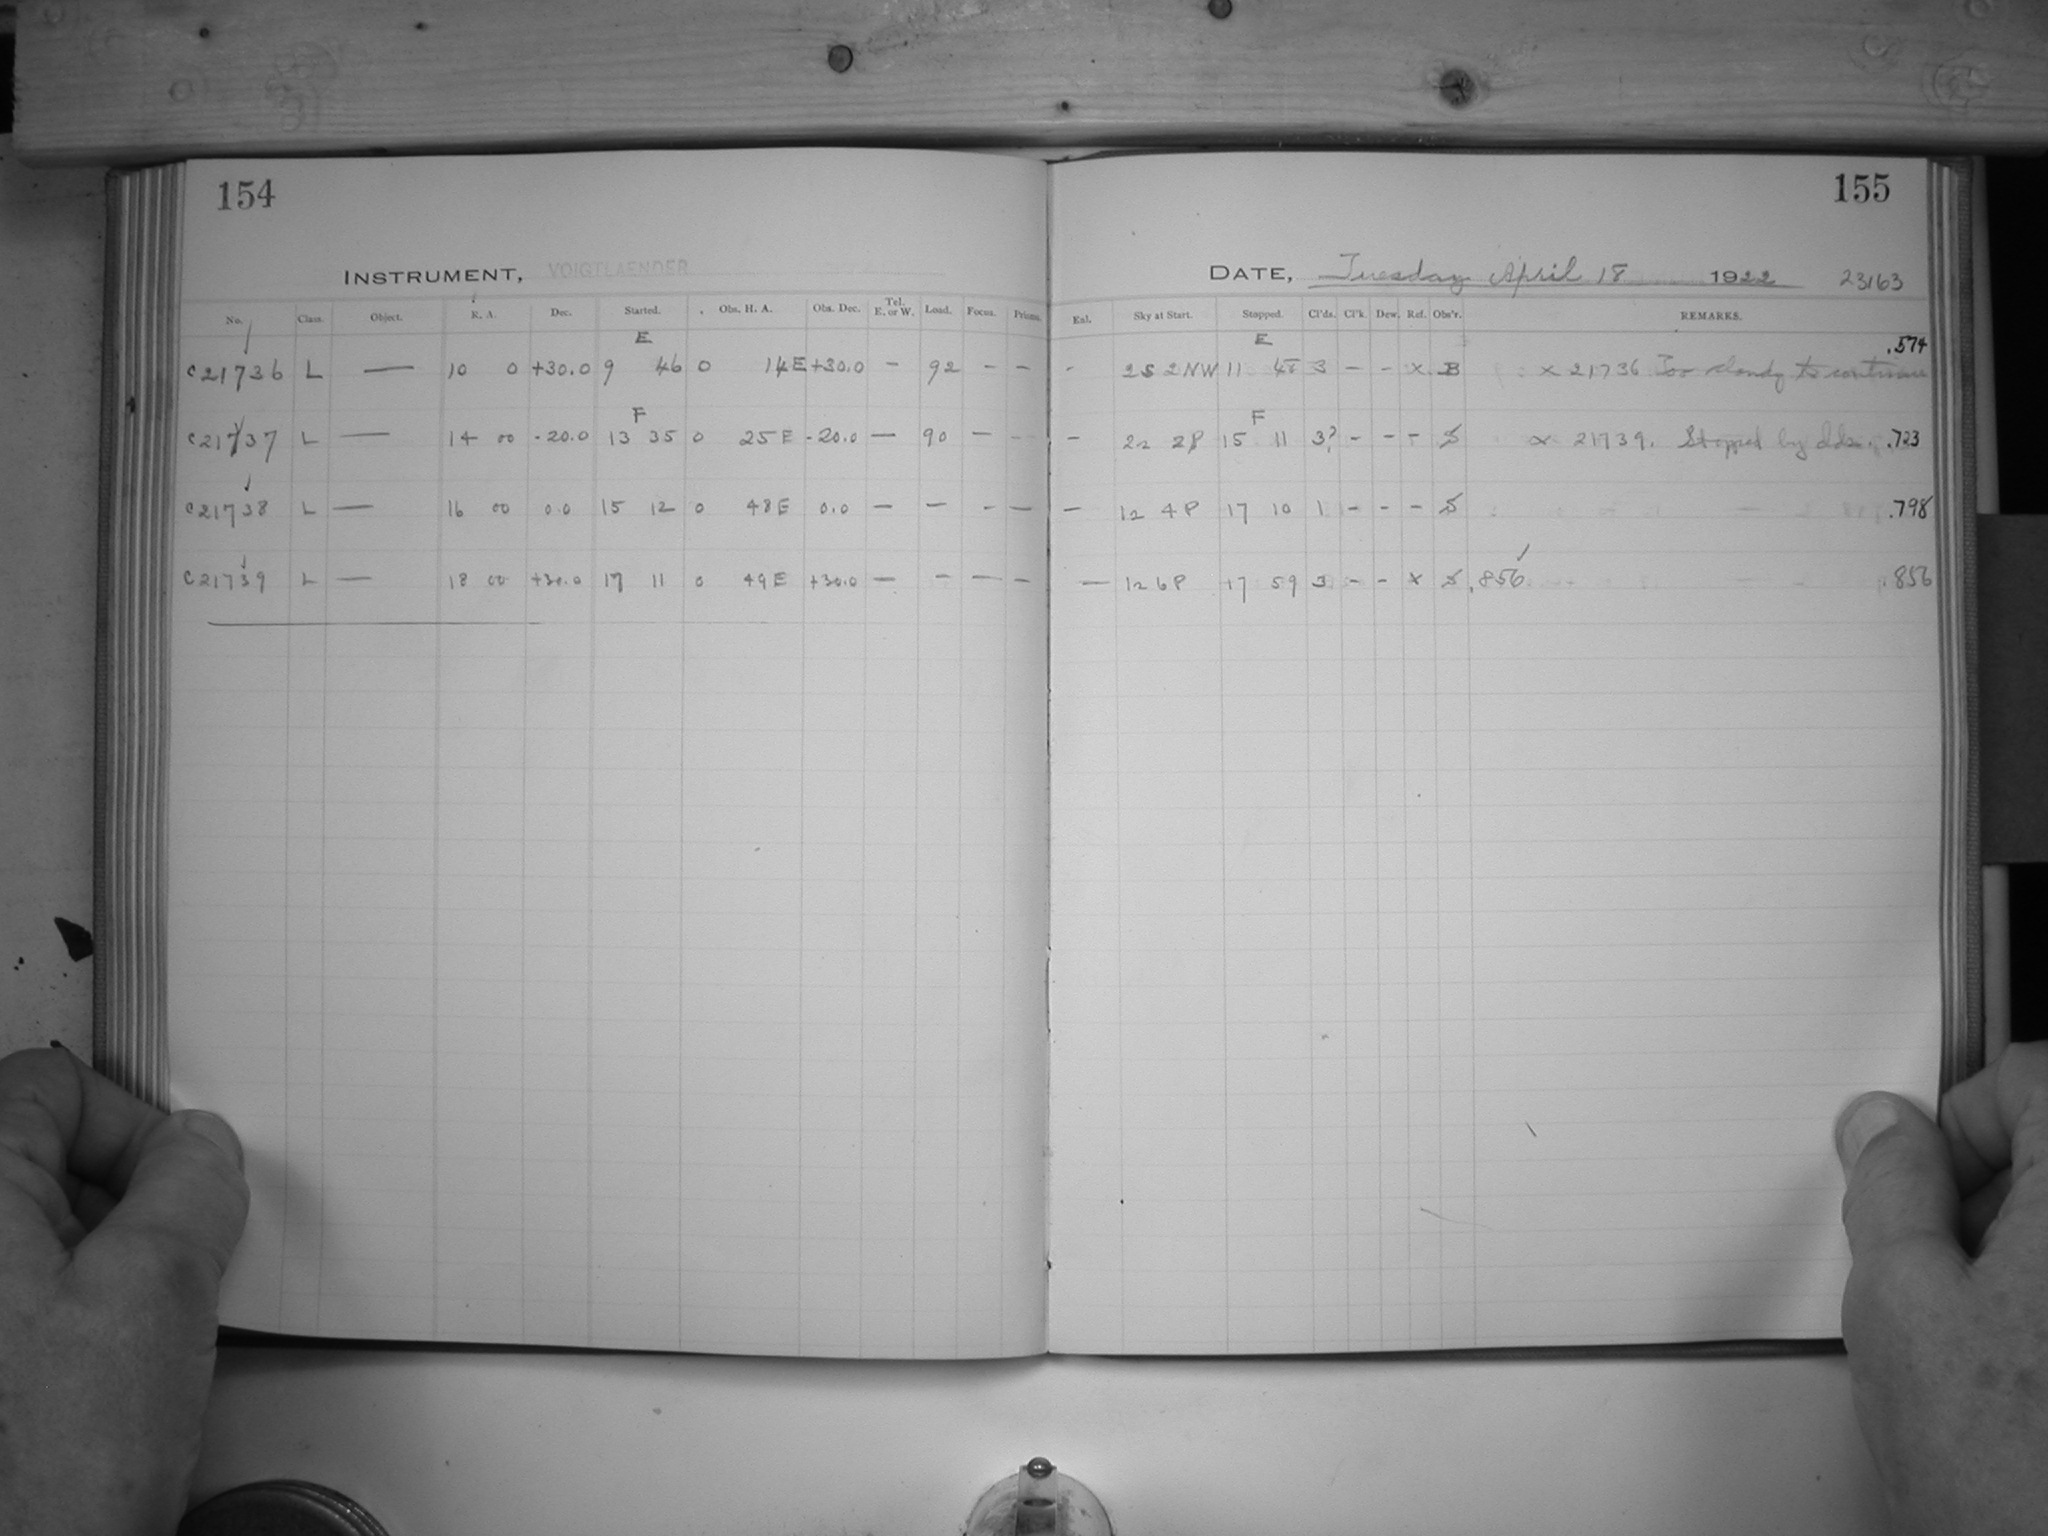 154
INSTRUMENT, VOIGTLAENDER
No. Class. Object. R. A. Dec. Started. Obs. H. A. Obs. Dec. Tel. E. or W. Load. Focus. Prisms.
E
c21736 L — 10 0 +30.0 9 46 0 14E +30.0 — 92 - -
F
c21737 L — 14 00 -20.0 13 35 0 25 E -20.0 — 90 - -
c21738 L — 16 00 0.0 15 12 0 48 E 0.0 — — - —
c21739 L — 18 00 +30.0 17 11 0 49 E +30.0 — - — -
155
DATE, Tuesday April 18 1922 23163
Enl. Sky at Start. Stopped. Cl'ds. Cl'k. Dew. Ref. Obs'r. REMARKS.
E .574
- 2S 2NW 11 48 3 - - x B x 21736 Too cloudy to continue
F
- 22 2P 15 11 3? - - - S x 21739. Stopped by clds. .723
- 12 4P 17 10 1 - - - S .798
— 12 6P 17 59 3 - - x S .856 .856